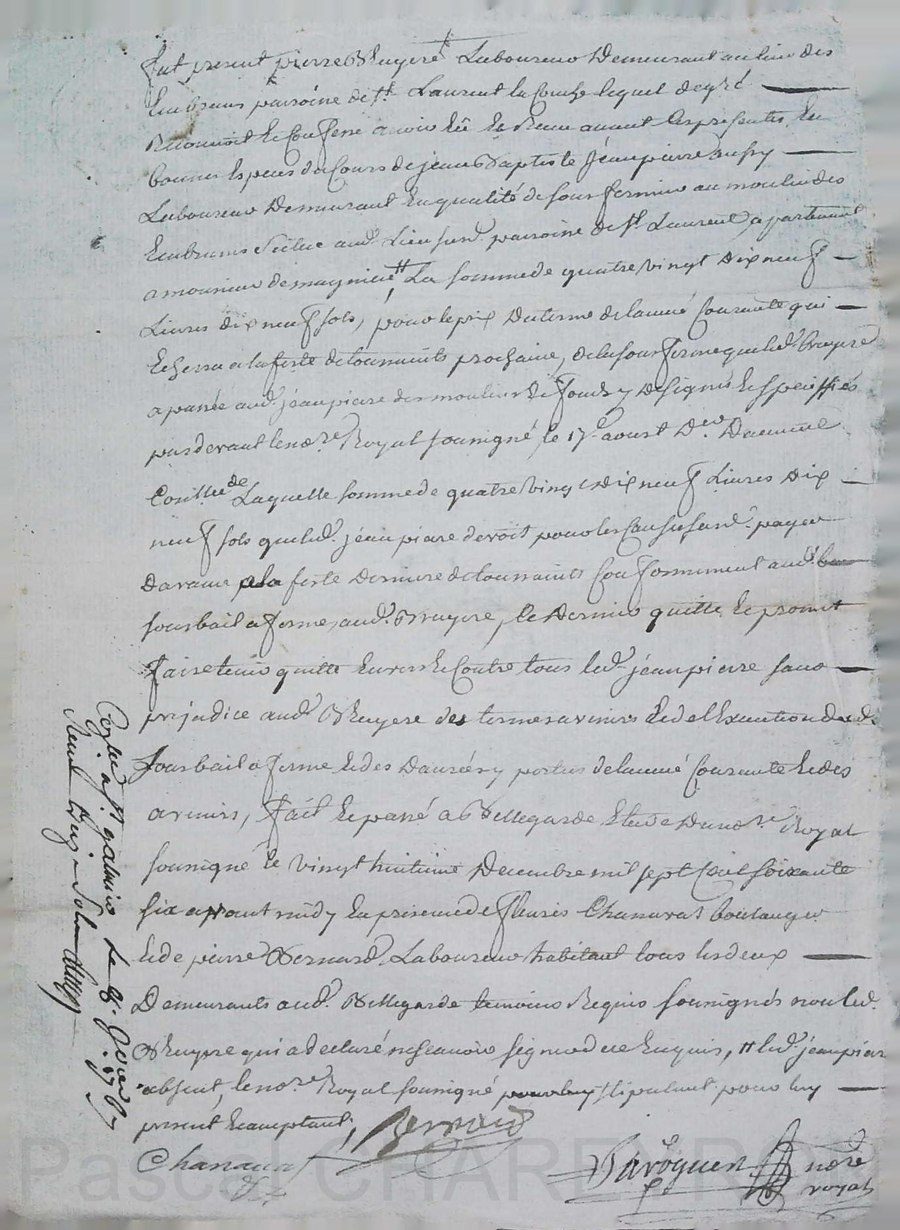 fut present pierre Bruyere Laboureur Demeurant au lieu des
Embrums paroine de St. Laurent la Conche lequel de gré
Reconnoit et Confesse avoir Eû et Receu avant Ces presentes En
bonnes Especes de Cours de jean Baptiste Jeanpierre
Laboureur Demeurant En qualité de sous fermier au moulin des
Embrums Scitue aud. Lieu susd. paroine de St Laurent, apartenant
a monsieur de magnieu La somme de quatre vingt Dix neuf
Livres dix neuf sols, pour le prix du terme de lanné Courante qui
Echerra a la feste de toussaints prochaine, de la sous ferme que led. Bruyere
a passée aud. jeanpierre des moulins Et fonds y Designés Et Speciffiés
pardevant le nore. Royal soussigné, le 17e. aoust Der. Duement
Conllée de Laquelle somme de quatre vingt Dix neuf Livres Dix
neuf sols que led. jeanpierre devoit pour les Causes susd. payer
Davance a la feste Derniere de toussaints Conformement aud.
sous bail a ferme, aud. Bruyere, Ce Dernier quitte Et promet
faire tenir quitte Envers Et Contre tous led. jeanpierre sans
prejudice aud. Bruyere des termes avenirs Et de l'Execution dud.
sous bail a ferme Et des Danrées y portés de lanné Courante Et des
avenirs, fait Et passé a Bellegarde Etude Du nore. Royal
soussigné le vingt huitieme Decembre mil sept Cent soixante
six avant midy En presence de fleuris Chanavat boulanger
Et de pierre Bernard Laboureur habitant tous les deux
Demeurants aud. Bellegarde temoins Requis soussignés non led.
Bruyere qui a declaré ne scavoir signer de ce Enquis, et led. jeanpierre
absent, le nore. Royal soussigné stipulant pour luy
present Et acceptant,
Bernard
Chanavat
nore
royal
Controllé a St galmier Le 8. Janvier 1767
Reçu
Pascal CHAR